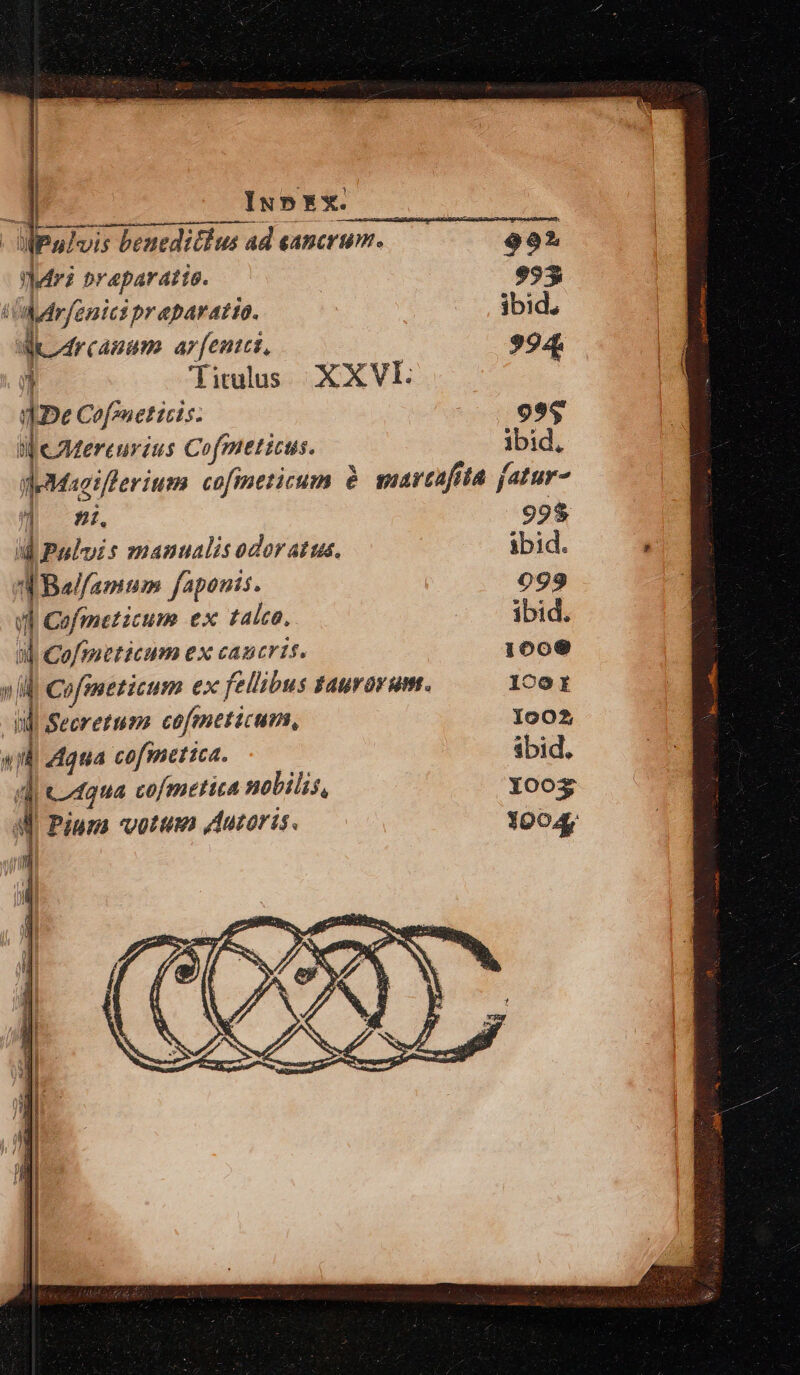 INDEX.
Pulvis benedictus ad cancrum. 992
Ari præparatio. 993
Arſenici præparatio. ibid.
Arcanum arſenici, 994
Titulus XXVI.
De Coſmeticis: 995
Mercurius Coſmeticus. ibid.
Magiſterium coſmeticum è marcaſita ſatur-
ni. 998
Pulvis manualis odoratus. ibid.
Balſamum ſaponis. 999
Coſmeticum ex talco. ibid.
Coſmeticum ex cancris. 1000
Coſmeticum ex fellibus taurorum. 1001
Secretum coſmeticum, 1002
Aqua coſmetica. ibid.
Aqua coſmetica nobilis, 1003
Pium votum Autoris. 1004